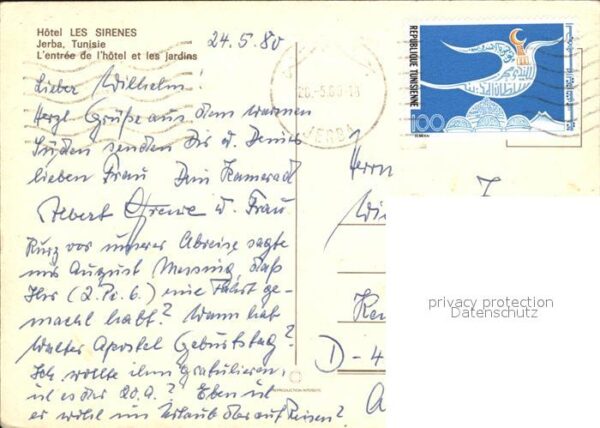 Hôtel LES SIRENES
Jerba, Tunisie
L'entrée de l'hôtel et les jardins
24.5.80
Lieber Wilhelm!
Herzl. Grüße aus dem warmen
Süden senden Dir u. Deiner
lieben Frau Dein Kamerad
Albert u. Frau
Kurz vor unserer Abreise sagte
mir August Messing, daß
Ihr (2. Pi. 6.) eine Fahrt ge-
macht habt? Wann hat
Walter Apostel Geburtstag?
Ich wollte ihm gratulieren,
ist es der 20.? Eben ist
er wohl im Urlaub oder auf Reisen?
JERBA
REPUBLIQUE TUNISIENNE
100
Herrn
D-4
REPRODUCTION INTERDITE
privacy protection
Datenschutz